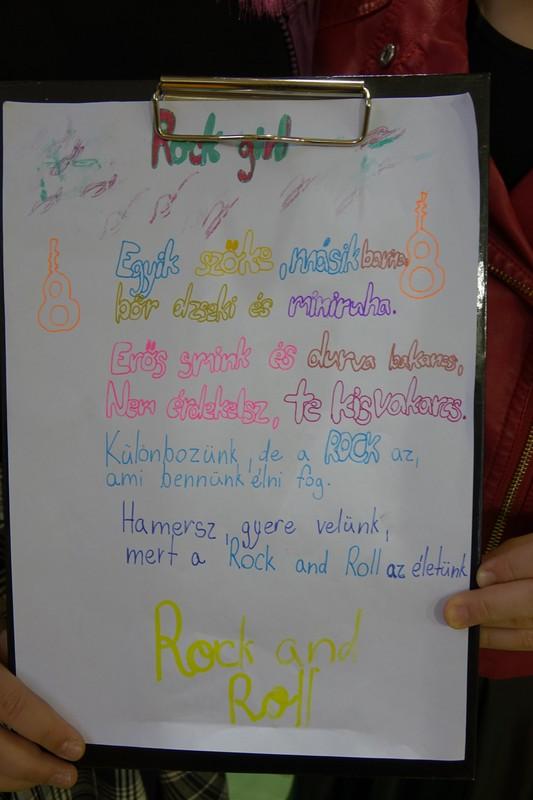 Rock girl
Egyik szőke, másik barna,
bőr dzseki és miniruha.
Erős smink és durva bakancs,
Nem érdekelsz, te kisvakarcs.
Különbozünk, de a ROCK az,
ami bennünk élni fog.
Hamersz, gyere velünk,
mert a Rock and Roll az életünk
Rock and
Roll